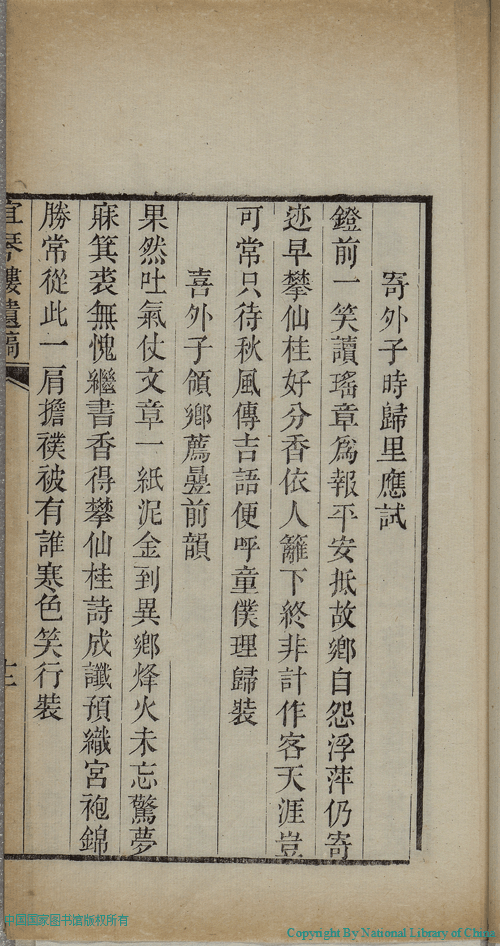 寄外子時歸里應試
鐙前一笑讀瑤章爲報平安抵故鄉自怨浮萍仍寄
迹早攀仙桂好分香依人籬下終非計作客天涯豈
可常只待秋風傳吉語便呼童僕理歸裝
喜外子領鄉薦疊前韻
果然吐氣仗文章一紙泥金到異鄉烽火未忘驚夢
寐箕裘無愧繼書香得攀仙桂詩成讖預織宮袍錦
勝常從此一肩擔襆被有誰寒色笑行裝
宜琴樓遺稿
中国国家图书馆版权所有
Copyright By National Library of China